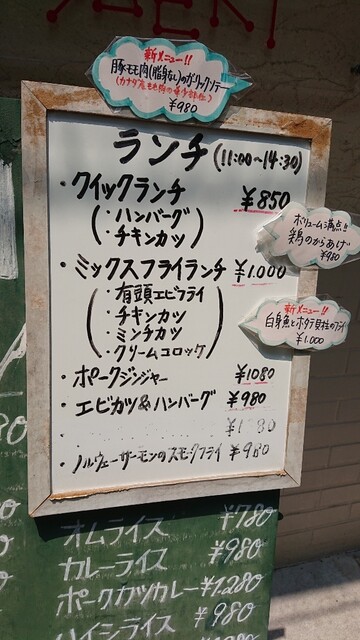 新メニュー!!
豚モモ肉(脂身なし)のポークソテー
¥980
ランチ (11:00~14:30)
・クイックランチ ¥850
(・ハンバーグ
・チキンカツ)
ボリューム満点!!
鶏のからあげ
¥980
・ミックスフライランチ ¥1.000
(・有頭エビフライ
・チキンカツ
・ミンチカツ
・クリームコロッケ)
新メニュー!!
白身魚とホタテ貝柱のフライ
¥1.000
・ポークジンジャー ¥1080
・エビカツ&ハンバーグ ¥980
・ノルウェーサーモンのスモークフライ ¥980
オムライス ¥780
カレーライス ¥980
ポークカツカレー ¥1.280
ハイシライス ¥980